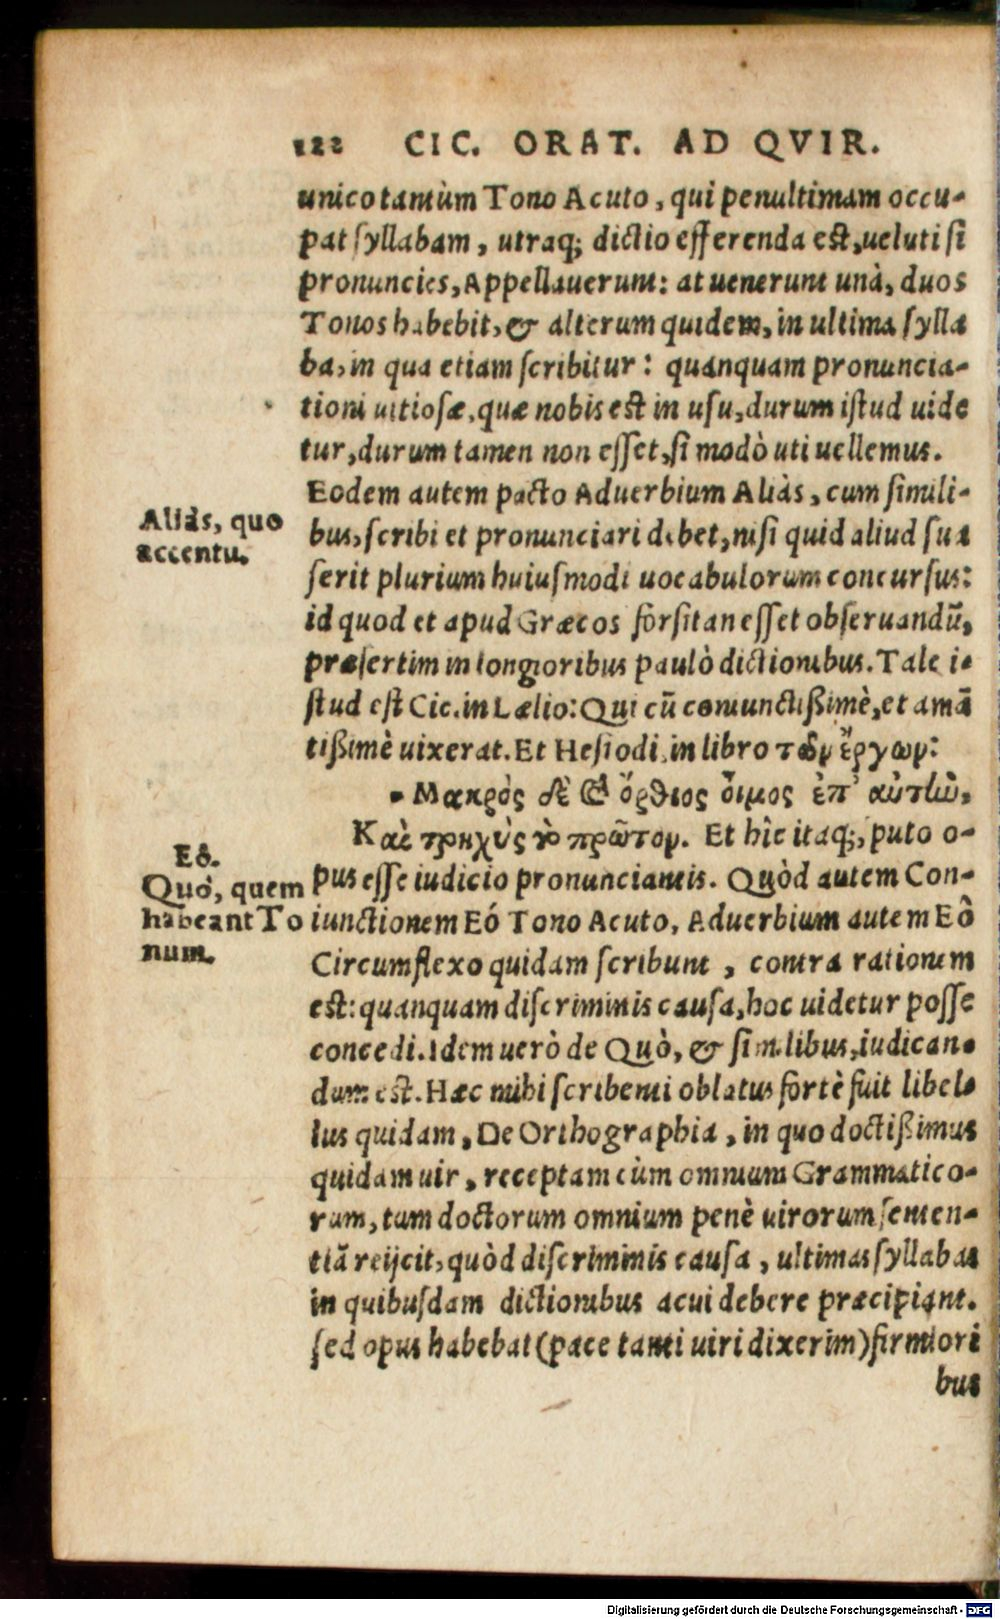 122 CIC. ORAT. AD QVIR.
unico tantùm Tono Acuto, qui penultimam occu-
pat syllabam, utraq; dictio efferenda est, ueluti si
pronuncies, Appellauerunt: at uenerunt unà, duos
Tonos habebit, & alterum quidem, in ultima sylla
ba, in qua etiam scribitur: quanquam pronuncia-
tioni uitiosæ, quæ nobis est in usu, durum istud uide
tur, durum tamen non esset, si modò uti uellemus.
Eodem autem pacto Aduerbium Aliàs, cum simili-
bus, scribi et pronunciari debet, nisi quid aliud sua
serit plurium huiusmodi uocabulorum concursus:
id quod et apud Græcos forsitan esset obseruandũ,
præsertim in longioribus paulò dictionibus. Tale i-
stud est Cic. in Lælio: Qui cũ coniunctißimè, et amã
tißimè uixerat. Et Hesiodi, in libro τῶν ἔργων:
Μακρὸς δὲ καὶ ὄρθιος οἶμος ἐπ' αὐτὼ,
Καὶ τρηχὺς τὸ πρῶτον. Et hîc itaq;, puto o-
pus esse iudicio pronunciantis. Quòd autem Con-
iunctionem Eó Tono Acuto, Aduerbium autem Eô
Circumflexo quidam scribunt, contra rationem
est: quanquam discriminis causa, hoc uidetur posse
concedi. Idem uerò de Quò, & similibus, iudican-
dum est. Hæc mihi scribenti oblatus fortè fuit libel-
lus quidam, De Orthographia, in quo doctißimus
quidam uir, receptam cùm omnium Grammatico-
rum, tum doctorum omnium penè uirorum senten-
tiã reijcit, quòd discriminis causa, ultimas syllabas
in quibusdam dictionibus acui debere præcipiant.
sed opus habebat (pace tanti uiri dixerim) firmiori
bus
Aliàs, quo
accentu.
Eô.
Quò, quem
habeant To
num.
Digitalisierung gefördert durch die Deutsche Forschungsgemeinschaft - DFG